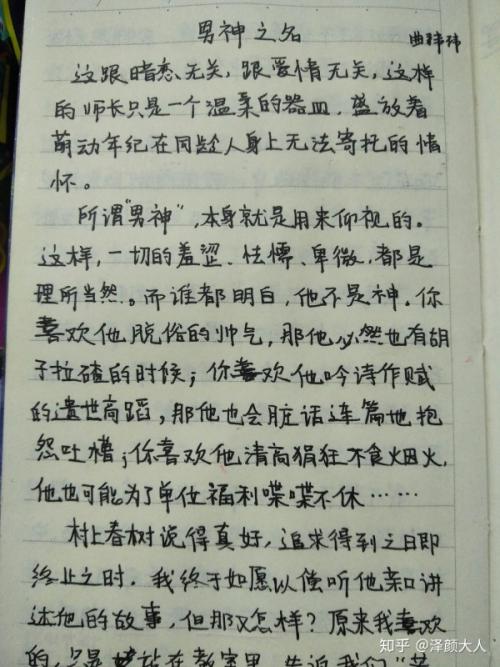 男神之名
曲玮玮
这跟暗恋无关，跟爱情无关，这样
的师长只是一个温柔的器皿，盛放着
萌动年纪在同龄人身上无法寄托的情
怀。
所谓“男神”，本身就是用来仰视的。
这样，一切的羞涩、怯懦、卑微，都是
理所当然。而谁都明白，他不是神。你
喜欢他脱俗的帅气，那他必然也有胡
子拉碴的时候；你喜欢他吟诗作赋
的遗世高蹈，那他也会脏话连篇地抱
怨吐槽；你喜欢他清高狷狂不食烟火，
他也可能为了单位福利喋喋不休……
村上春树说得真好，追求得到之日即
终止之时，我终于如愿以偿听他亲口讲
述他的故事，但那又怎样？原来我喜欢
的，只是站在教室里，告诉我们
知乎 @泽颜大人